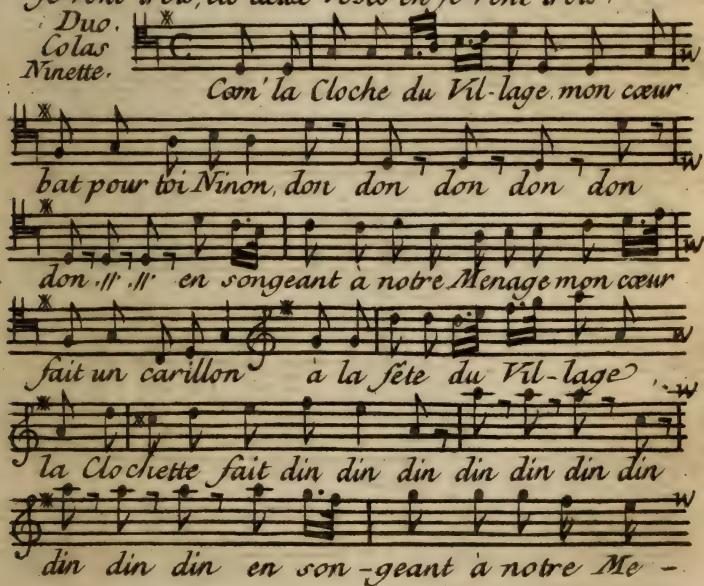 je rent trois, ab deux reste en je rent trois.
Duo.
Colas
Ninette.
Com' la Cloche du Vil-lage, mon cœur
bat pour toi Ninon, don don don don don
don .//. .//. en songeant à notre Menage mon cœur
fait un carillon à la fête du Vil-lage
la Clochette fait din din din din din din din
din din din en son-geant à notre Me-